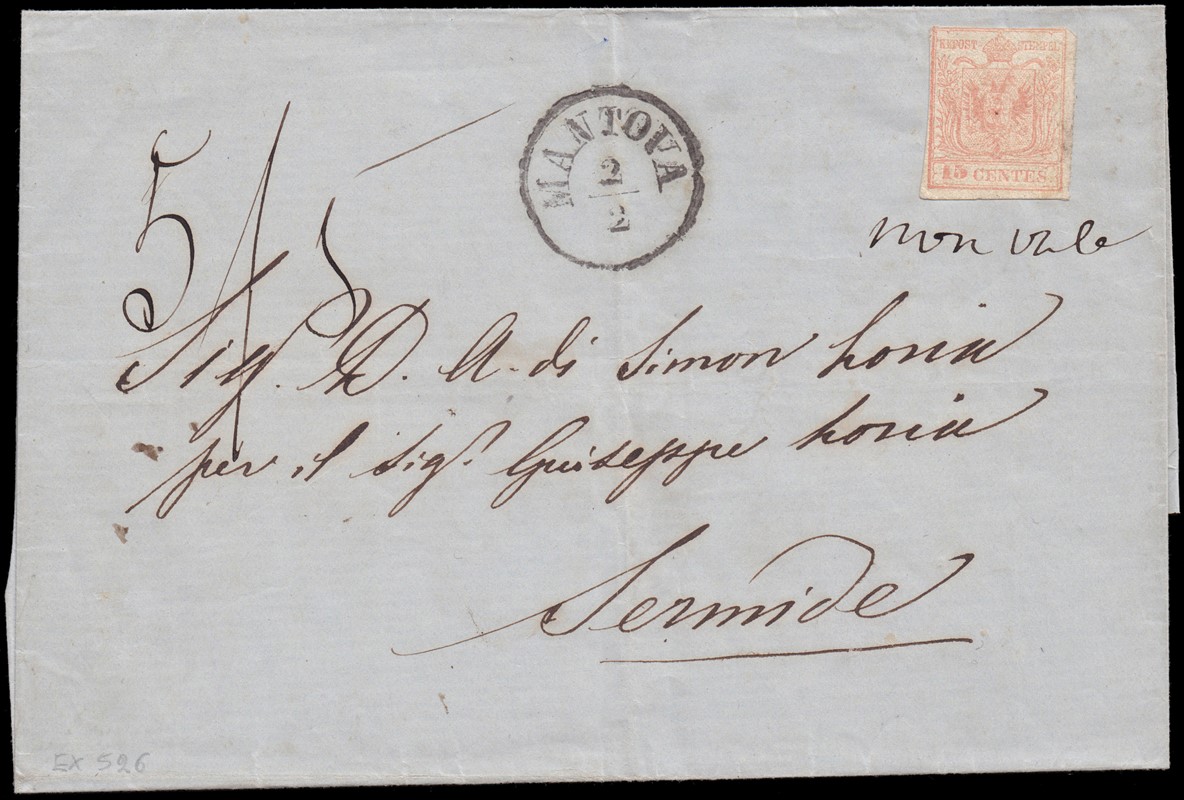 KKPOST STEMPEL
15 CENTES.
MANTOVA
2
2
non vale
5
Sigr. D. A. di Simon Loria
per il Sigr. Giuseppe Loria
Sermide
EX 526